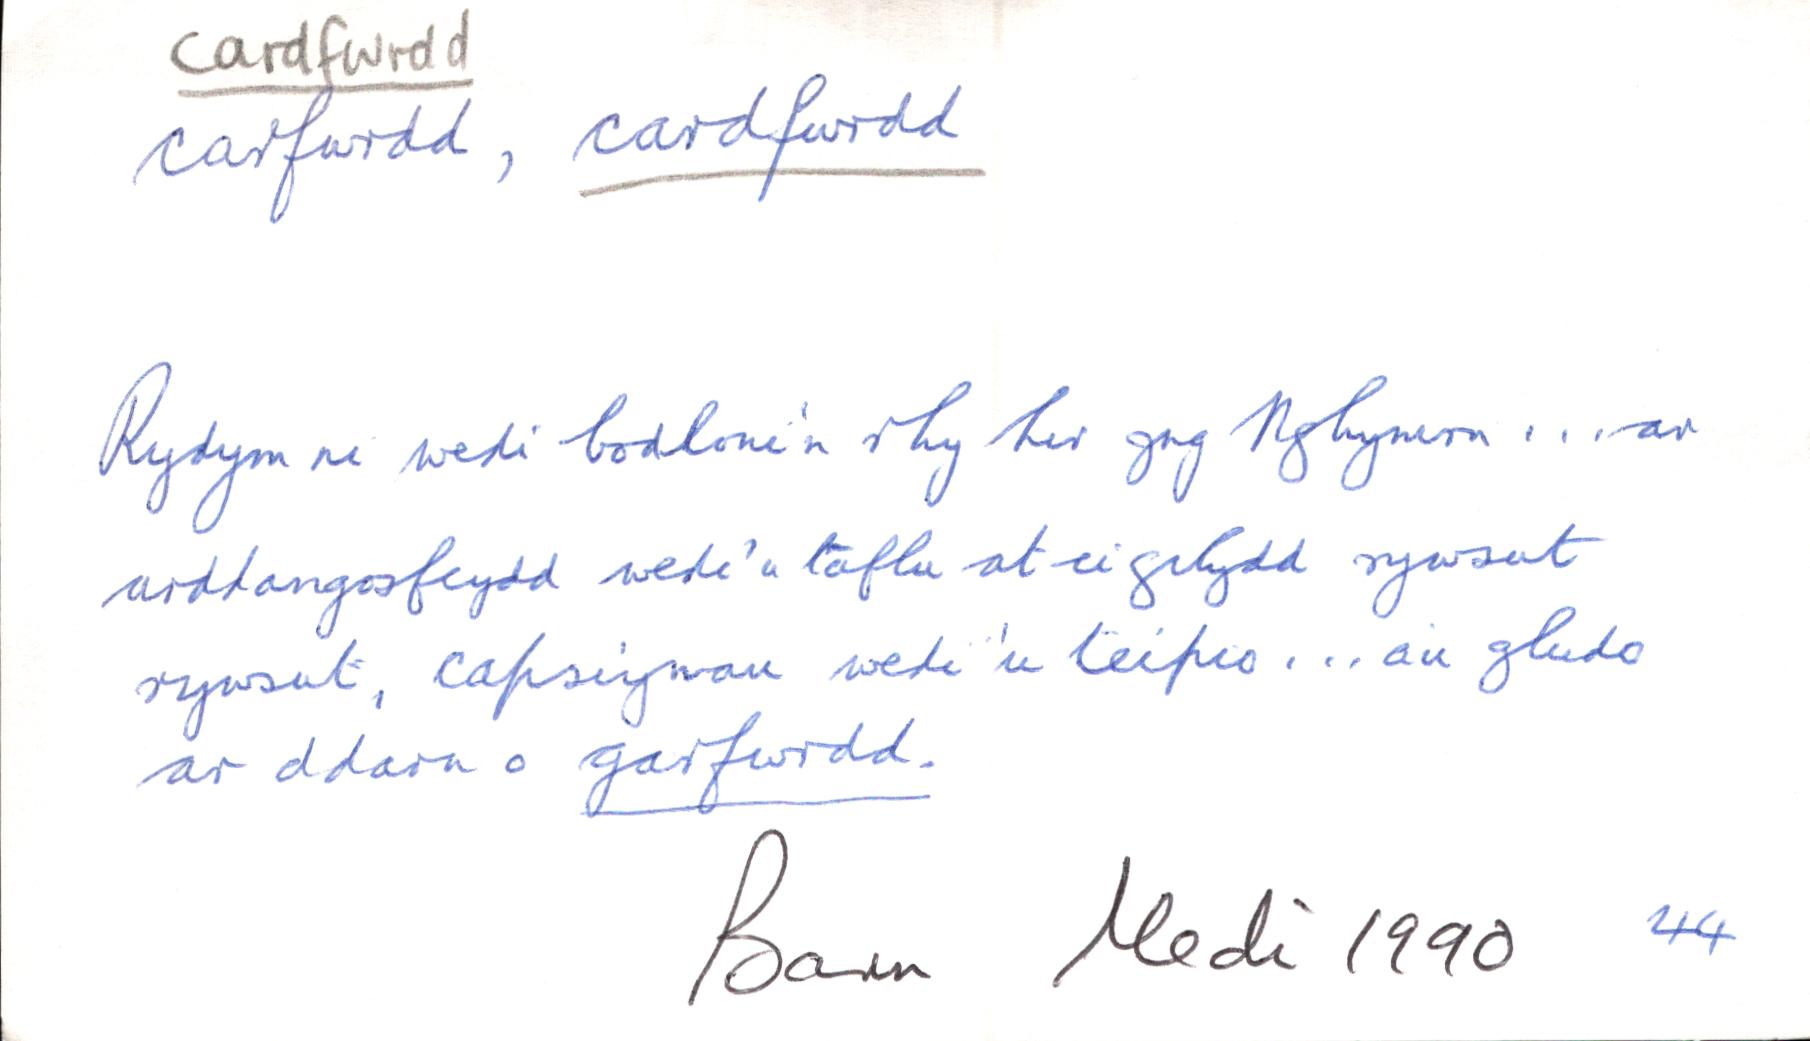 cardfwrdd
carfwrdd, cardfwrdd
Rydym ni wedi bodloni'n rhy hir yng Nghymru ... ar
arddangosfeydd wedi'u taflu at ei gilydd rywsut
rywsut, capsiynau wedi'u teipio ... a'u gludo
ar ddarn o garfwrdd.
Barn Medi 1990 44